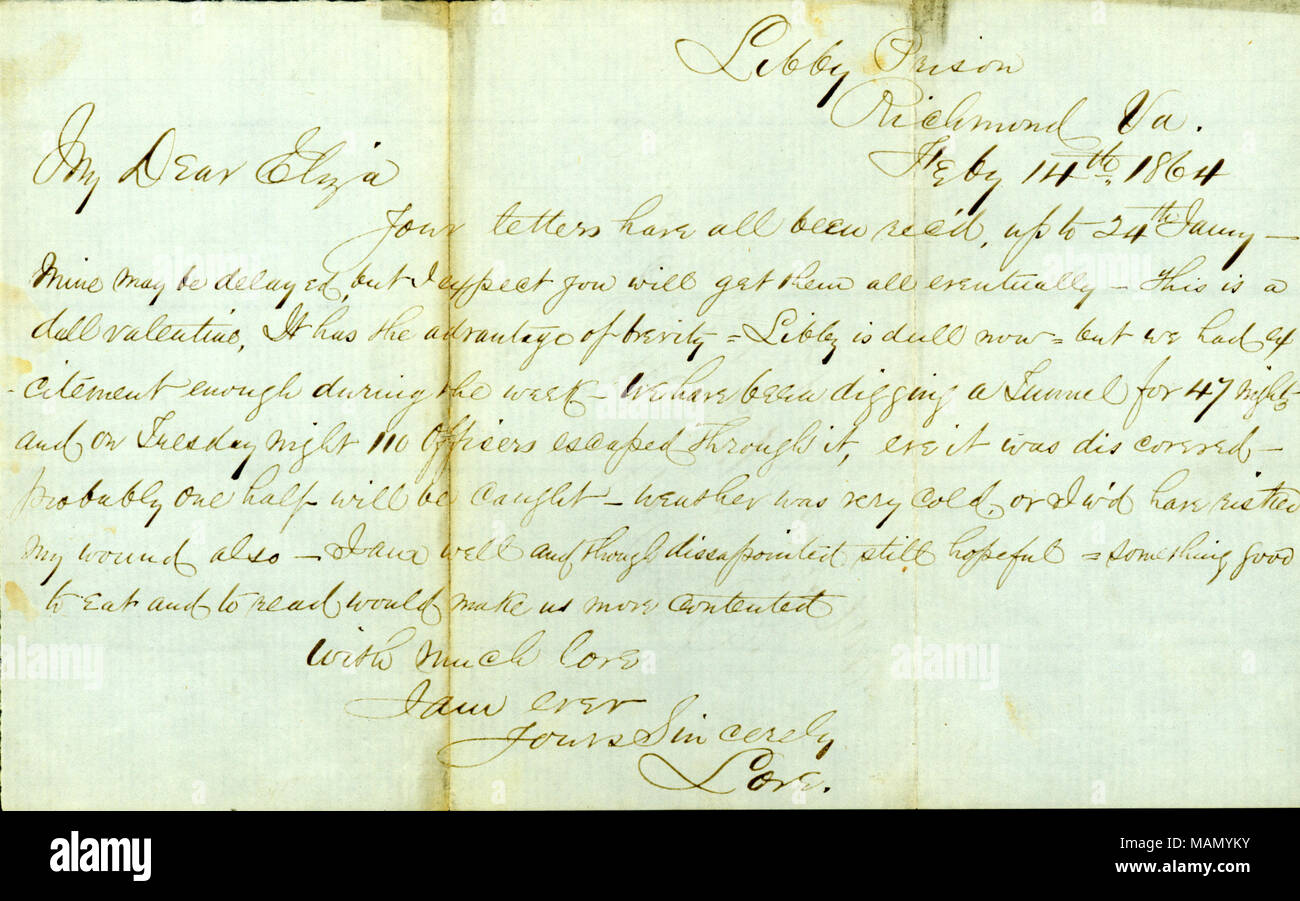 Libby Prison
Richmond Va.
Feby 14th, 1864
My Dear Eliza
Your letters have all been rec'd, up to 24th Jany —
Mine may be delayed, but I expect you will get them all eventually — This is a
dull valentine, It has the advantage of brevity = Libby is dull now = but we had ex
-citement enough during the week — We have been digging a Tunnel for 47 nights
and on Tuesday night 110 Officers escaped through it, ere it was discovered —
probably one half will be caught — weather was very cold, or I w'd have risked
my wound also — I am well and though dissapointed still hopeful = something good
to eat and to read would make us more contented
with much love
I am ever
Yours Sincerely
Love.
alamy
alamy
alamy
alamy
alamy
Image ID: MAMYKY
www.alamy.com